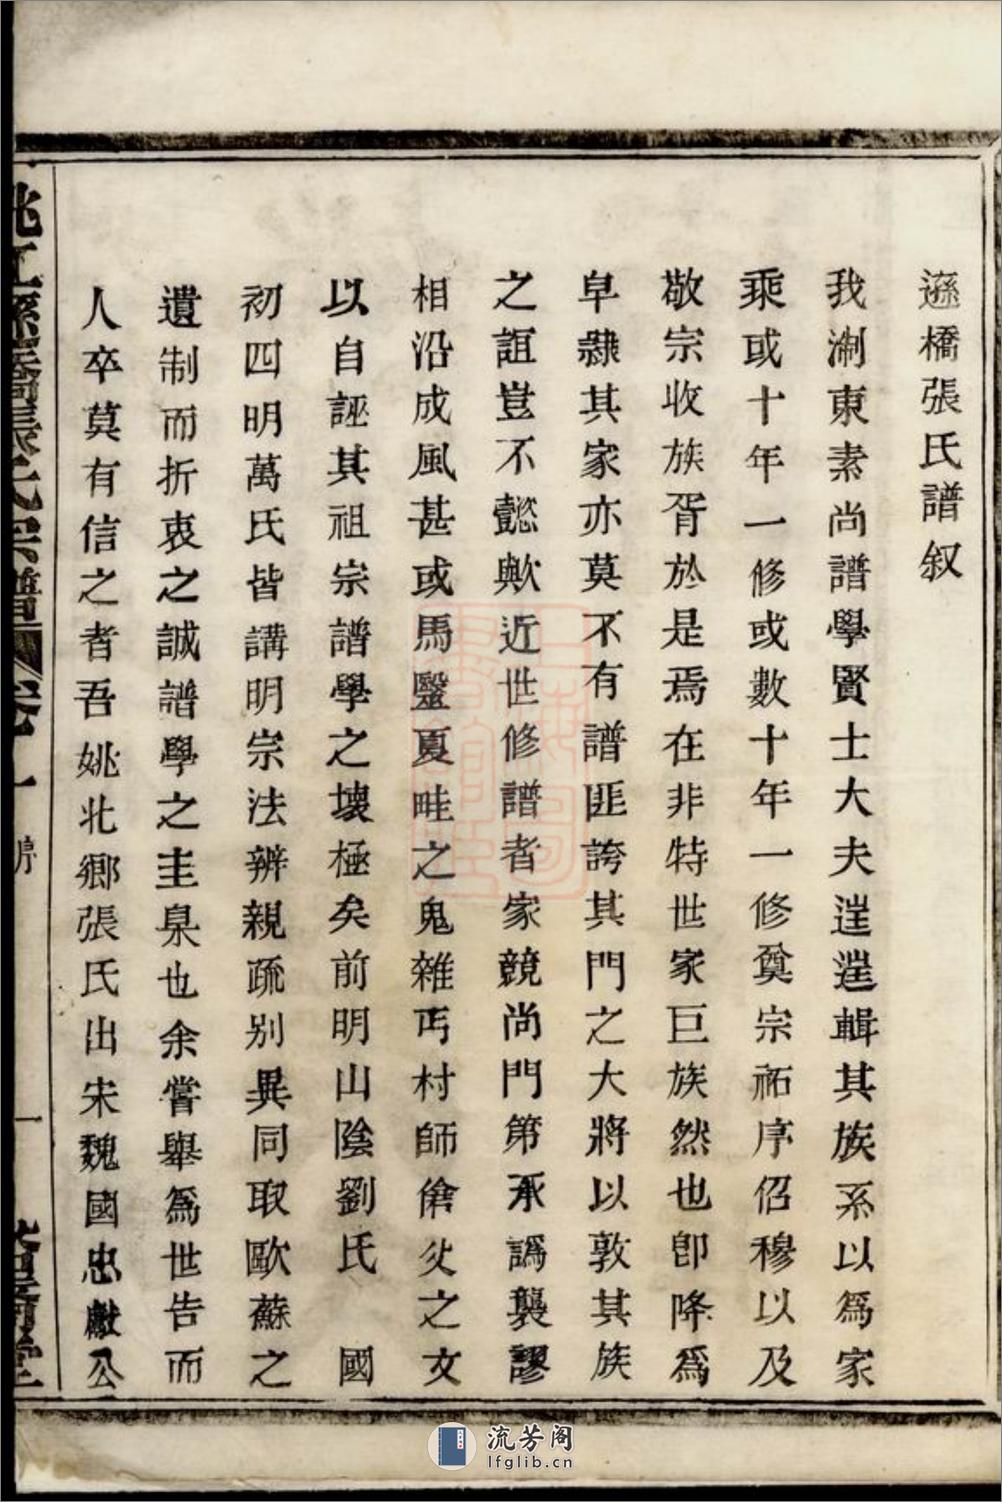 遜橋張氏譜叙
我淛東素尚譜學賢士大夫𨓏𨓏輯其族系以爲家
乘或十年一修或數十年一修奠宗祏序佋穆以及
敬宗收族胥於是焉在非特世家巨族然也卽降爲
皁隸其家亦莫不有譜匪誇其門之大將以敦其族
之誼豈不懿歟近世修譜者家競尚門第承譌襲謬
相沿成風甚或馬醫夏畦之鬼雜丐村師傖父之文
以自誣其祖宗譜學之壞極矣前明山陰劉氏　國
初四明萬氏皆講明宗法辨親疏别異同取歐蘇之
遺制而折衷之誠譜學之圭臬也余嘗舉爲世告而
人卒莫有信之者吾姚北鄉張氏出宋魏國忠獻公
姚江遜橋張氏宗譜 卷一 序 一